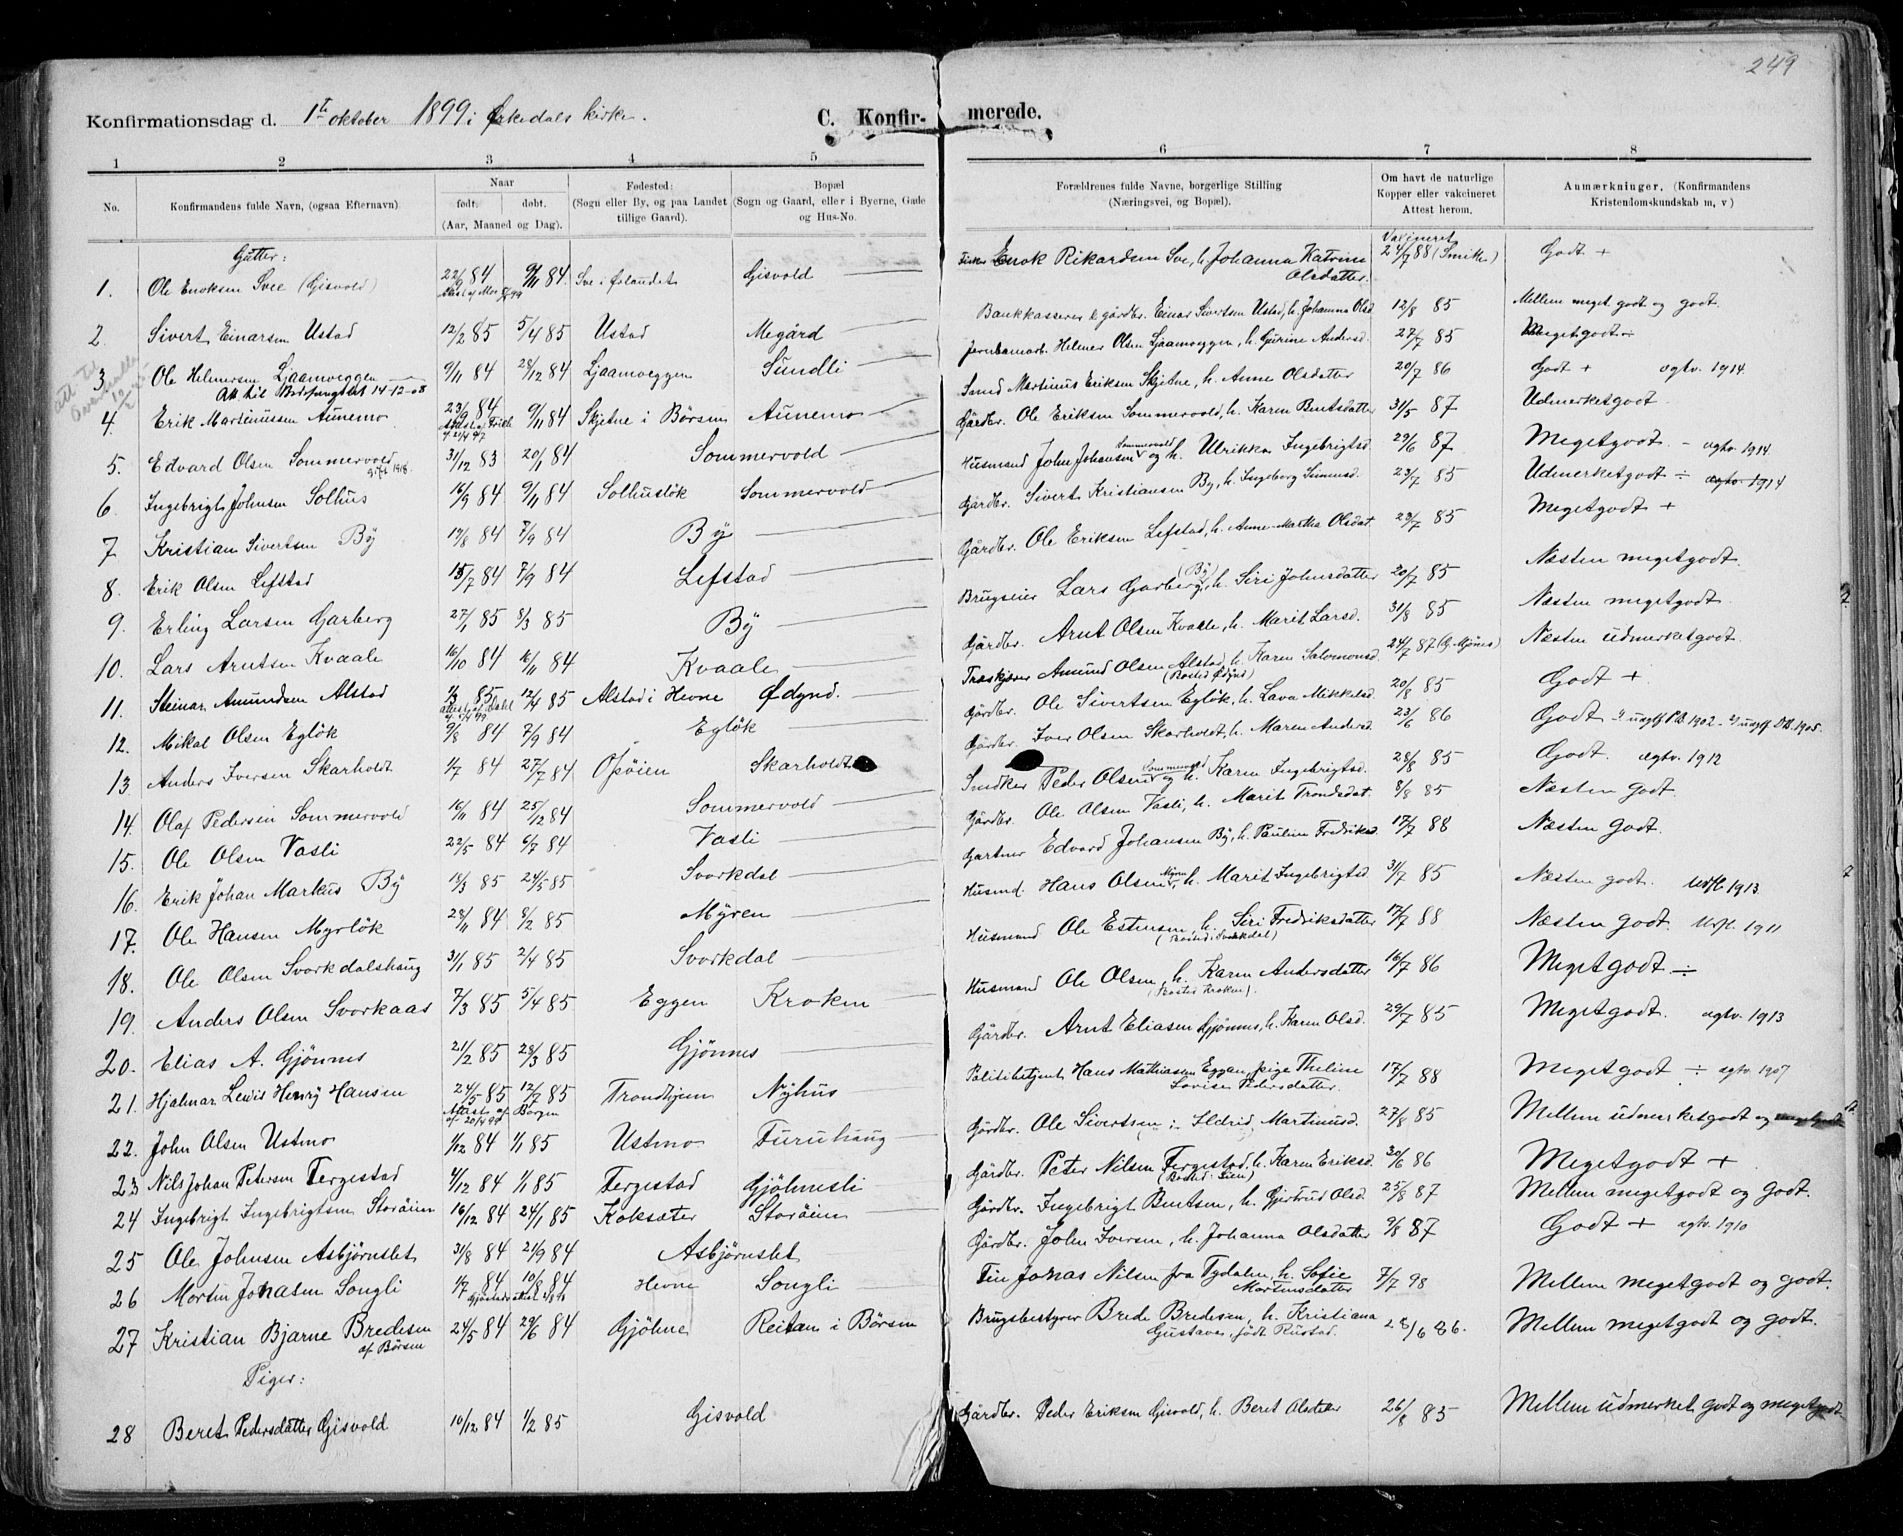 249
Konfirmationsdag d. 1ste oktober 1899 i Ørkedals kirke.
C. Konfirmerede.
1 2 3 4 5 6 7 8
No. Konfirmandens fulde Navn, (ogsaa Efternavn) Naar født. døbt. (Aar, Maaned og Dag). Fødested: (Sogn eller By, og paa Landet tillige Gaard). Bopæl (Sogn og Gaard, eller i Byerne, Gade og Hus-No. Forældrenes fulde Navne, borgerlige Stilling (Næringsvei, og Bopæl). Om havt de naturlige Kopper eller vakcineret Attest herom. Anmærkninger, (Konfirmandens Kristendomskundskab m, v)
Gutter:
1. Ole Enoksen Svee (Gisvold) 22/9 84 9/11 84 Sve i Ørlandet Gisvold Enok Rikardsen Sve, h. Johanna Katrine Olsdatter. Vaksineret 24/7 88 (Smitke) Godt +
2. Sivert Einarsen Ustad 12/2 85 5/4 85 Ustad Megård Bankkasserer & gårdbr. Einar Sivertsen Ustad, h. Johanna Olsd 12/8 85 Mellem meget godt og godt.
3. Ole Helmersen Ljaamveggen 9/11 84 28/12 84 Ljaamveggen Sundli Jernbanearb. Helmer Olsen Ljaamveggen, h. Gurine Andersd. 27/7 85 Megetgodt
Att. til 14-12-08
4. Erik Martinussen Aunemo 23/9 84 9/11 84 Skjetne i Børsen Aunemo Smed Martinus Eriksen Skjetne, h. Anne Olsdatter 20/7 86 Godt + agtv. 1914.
5. Edvard Olsen Sommervold 31/12 83 20/1 84 Sommervold Gårdbr. Ole Eriksen Sommervold, h. Karen Bentsdatter 31/5 87 Udmerketgodt.
gift 1918.
6. Ingebrigt Johnsen Solhus 16/9 84 9/11 84 Solhusløk Sommervold Husmand John Johansen Sommervold og h. Ulrikka Ingebrigtsd. 29/6 87 Megetgodt. - agtv. 1914
7 Kristian Sivertsen By 17/8 84 7/9 84 By Gårdbr. Sivert Kristiansen By, h. Ingeborg Simensd. 23/7 85 Udmerketgodt ÷ agtv. 1914
8. Erik Olsen Lefstad 15/7 84 7/9 84 Lefstad Gårdbr. Ole Eriksen Lefstad, h. Anne Marta Olsdat. 23/7 85 Megetgodt +
9. Erling Larsen Garberg 27/1 85 8/3 85 By Brugseier Lars Garberg (By), h. Siri Johnsdatter 20/7 85 Næsten megetgodt.
10. Lars Arntsen Kvaale 16/10 84 16/11 84 Kvaale Gårdbr. Arnt Olsen Kvaale, h. Marit Larsd. 31/8 85 Næsten megetgodt.
11. Steinar Amundsen Alstad 1/3 85 12/4 85 Alstad i Hevne Ødynd. Træskjærer Amund Olsen Alstad, h. Karen Salomonsd. (Bosted Ødynd) 24/7 87 (G. Mjønes) Næsten udmerketgodt.
12. Mikal Olsen Egløk 9/8 84 7/9 84 Egløk Gårdbr. Ole Sivertsen Egløk, h. Lava Mikkelsd. 20/8 85 Godt +
13 Anders Iversen Skarholdt 1/7 84 27/7 84 Opøien Skarholdt Gårdbr. Iver Olsen Skarholdt, h. Maren Andersd. 23/6 86 Godt
14. Olaf Pedersen Sommervold 16/11 84 25/12 84 Sommervold Snidker Peder Olsen Sommervold og h. Karen Ingebrigtsd. 28/8 85 Godt. agtv. 1912
15. Ole Olsen Vasli 22/5 84 6/7 84 Vasli Gårdbr. Ole Olsen Vasli, h. Marit Trondsdat. 8/8 85 Næsten godt.
16. Erik Johan Markus By 15/3 85 24/5 85 Svorkdal Gartner Edvard Johansen By, h. Pauline Fredriksd. 17/7 88 Næsten Godt.
17. Ole Hansen Myrløk 28/11 84 8/2 85 Myren Husmd. Hans Olsen Myren, h. Marit Ingebrigtsd 31/7 85 Næsten godt. Udfl. 1913.
18. Ole Olsen Svorkdalshaug 31/1 85 2/4 85 Svorkdal Husmand Ole Estensen, h. Siri Fredriksdatter (Bosted: Svorkdal) 17/7 88 Næsten godt. Udfl. 1911
19. Anders Olsen Svorkaas 7/3 85 5/4 85 Eggen Kroken Husmand Ole Olsen, h. Karen Andersdatter (Bosted Kroken). 16/7 86 Megetgodt ÷
20. Elias A. Gjønnes 21/2 85 28/3 85 Gjønnes Gårdbr. Arnt Eliasen Gjønnes, h. Karen Olsd. 29/7 85 Megetgodt. agtv. 1913
21. Hjalmar Lewis Henry Hansen 24/5 85 12/7 85 Trondhjem Nyhus Politibetjent Hans Mathiasen Eggen, pige Theline Lovise Pedersdatter. 17/7 88 Megetgodt ÷ agtv. 1907
22. John Olsen Ustmo 1/12 84 1/1 85 Ustmo Furuhaug Gårdbr. Ole Sivertsen : Ildrid Martinusd. 27/8 85 Mellem udmerketgodt og megetgodt
23 Nils Johan Petersen Fergestad 4/12 84 1/1 85 Fergestad Gjølmesli Gårdbr. Peter Nilsen Fergestad, h. Karen Eriksd. 30/6 86 Megetgodt +
24 Ingebrigt Ingebrigtsen Storøien 16/12 84 24/1 85 Koksæter Storøien Gårdbr. Ingebrigt Bentsen, h. Gjertrud Olsd. 25/8 87 Mellem megetgodt og Godt.
25 Ole Johnsen Asbjørnslet 31/8 84 21/9 84 Asbjørnslet Gårdbr. John Iversen, h. Johanna Olsdatter 9/8 87 Godt + agtv. 1910
26 Morten Jonasen Songli 1/7 84 10/8 84 Hevne Songli Fin Jonas Nilsen fra Tydalen, h. Sofie Martinsdatter 7/7 98 Mellem megetgodt og godt.
27 Kristian Bjarne Bredesen af Børsen 24/5 84 29/6 84 Gjølme Reitan i Børsen Brugsbestyrer Brede Bredesen, h. Kristiana Gustava, født Rustad. 28/6 86. Mellem megetgodt og godt.
Piger:
28 Beret Pedersdatter Gisvold 10/12 84 1/2 85 Gisvold Gårdbr. Peder Eriksen Gisvold, h. Beret Olsdatter 26/8 85 Mellem udmerket godt og megetgodt